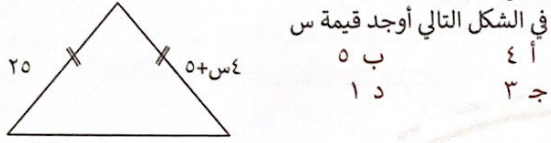 في الشكل التالي أوجد قيمة س
أ ٤ ب ٥
جـ ٣ د ١
٤س+٥
٢٥